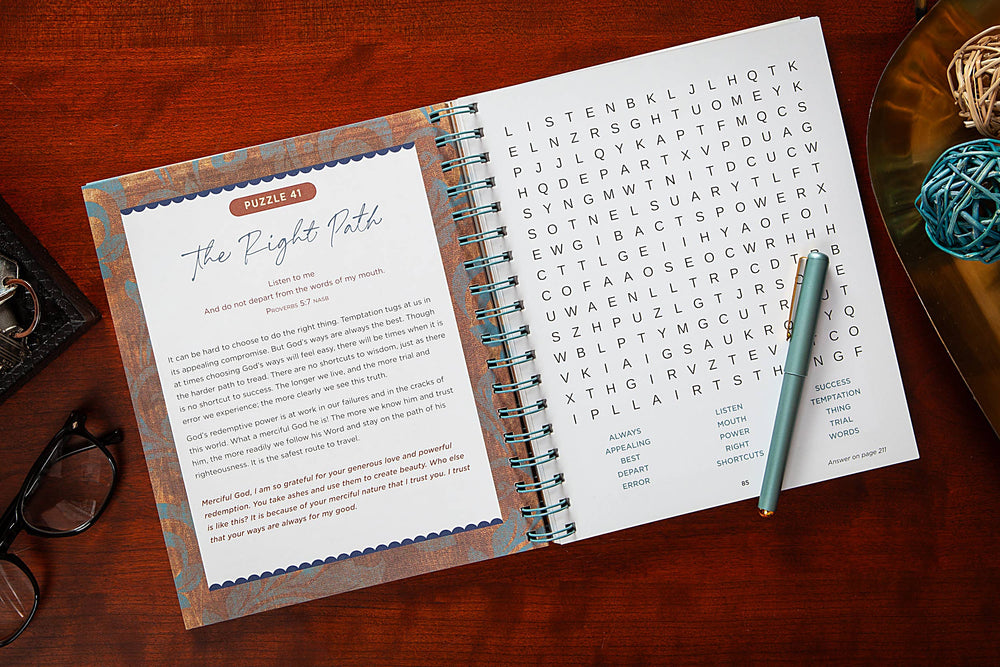 PUZZLE 41
The Right Path
Listen to me
And do not depart from the words of my mouth.
PROVERBS 5:7 NASB
It can be hard to choose to do the right thing. Temptation tugs at us in
its appealing compromise. But God's ways are always the best. Though
at times choosing God's ways will feel easy, there will be times when it is
the harder path to tread. There are no shortcuts to wisdom, just as there
is no shortcut to success. The longer we live, and the more trial and
error we experience; the more clearly we see this truth.
God's redemptive power is at work in our failures and in the cracks of
this world. What a merciful God he is! The more we know him and trust
him, the more readily we follow his Word and stay on the path of his
righteousness. It is the safest route to travel.
Merciful God, I am so grateful for your generous love and powerful
redemption. You take ashes and use them to create beauty. Who else
is like this? It is because of your merciful nature that I trust you. I trust
that your ways are always for my good.
L I S T E N B K L J L H Q T K
E L N Z R S G H T U O M E Y K
P J J L Q Y K A P T F M Q C S
H Q D E P A R T X V P D U A G
S Y N G M W T N I T D C U C W
S O T N E L S U A R Y T L F T
E W G I B A C T S P O W E R X
C T T L G E I I H Y A O F O I
C O F A A O S E O C W R H H H
U W A E N L L T R P C D T B
S Z H P U Z L G T J R S E
W B L P T Y M G C U T R U T
V K I A I G S A U K R Y Q
X T H G I R V Z T E V C O
I P L L A I R T S T H N G F
ALWAYS
APPEALING
BEST
DEPART
ERROR
LISTEN
MOUTH
POWER
RIGHT
SHORTCUTS
SUCCESS
TEMPTATION
THING
TRIAL
WORDS
85
Answer on page 211